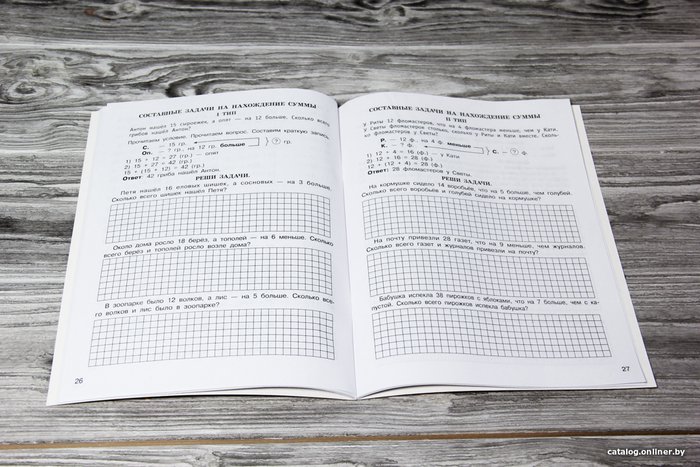 СОСТАВНЫЕ ЗАДАЧИ НА НАХОЖДЕНИЕ СУММЫ
I ТИП
Антон нашёл 15 сыроежек, а опят — на 12 больше. Сколько всего
грибов нашёл Антон?
Прочитаем условие. Прочитаем вопрос. Составим краткую запись.
С. — 15 гр.
Оп. — ? гр., на 12 гр. больше
? гр.
1) 15 + 12 = 27 (гр.) — опят
2) 15 + 27 = 42 (гр.)
15 + (15 + 12) = 42 (гр.)
Ответ: 42 гриба нашёл Антон.
РЕШИ ЗАДАЧИ.
Петя нашёл 16 еловых шишек, а сосновых — на 3 больше.
Сколько всего шишек нашёл Петя?
Около дома росло 18 берёз, а тополей — на 6 меньше. Сколько
всего берёз и тополей росло возле дома?
В зоопарке было 12 волков, а лис — на 5 больше. Сколько все-
го волков и лис было в зоопарке?
26
СОСТАВНЫЕ ЗАДАЧИ НА НАХОЖДЕНИЕ СУММЫ
II ТИП
У Риты 12 фломастеров, что на 4 фломастера меньше, чем у Кати.
У Светы фломастеров столько, сколько у Риты и Кати вместе. Сколь-
ко фломастеров у Светы?
Р. — 12 ф. на 4 ф. меньше
К. — ? ф.
С. — ? ф.
1) 12 + 4 = 16 (ф.) — у Кати
2) 12 + 16 = 28 (ф.)
12 + (12 + 4) = 28 (ф.)
Ответ: 28 фломастеров у Светы.
РЕШИ ЗАДАЧИ.
На кормушке сидело 14 воробьёв, что на 5 больше, чем голубей.
Сколько всего воробьёв и голубей сидело на кормушке?
На почту привезли 28 газет, что на 9 меньше, чем журналов.
Сколько всего газет и журналов привезли на почту?
Бабушка испекла 38 пирожков с яблоками, что на 7 больше, чем с ка-
пустой. Сколько всего пирожков испекла бабушка?
27
catalog.onliner.by